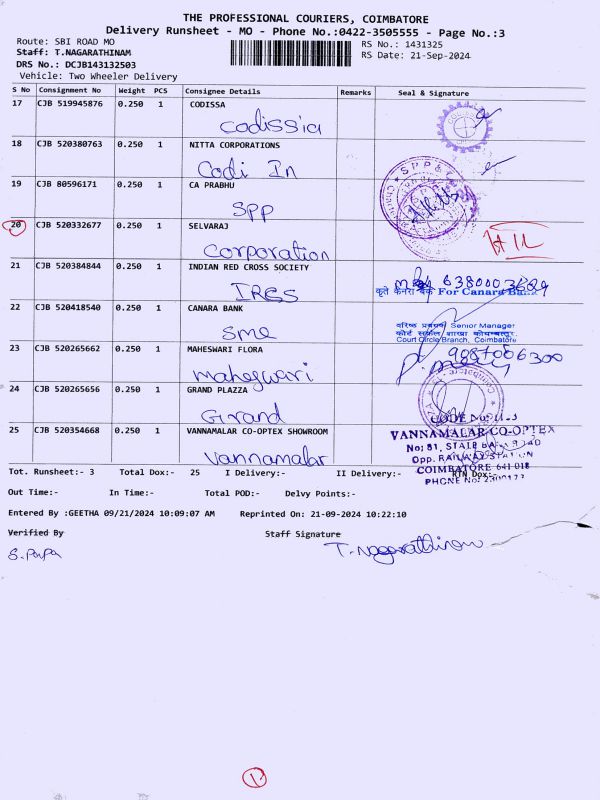 THE PROFESSIONAL COURIERS, COIMBATORE
Delivery Runsheet - MO - Phone No.:0422-3505555 - Page No.:3
Route: SBI ROAD MO
RS No.: 1431325
Staff: T.NAGARATHINAM
RS Date: 21-Sep-2024
DRS No.: DCJB143132503
Vehicle: Two Wheeler Delivery
S No Consignment No Weight PCS Consignee Details Remarks Seal & Signature
17 CJB 519945876 0.250 1 CODISSA
Codissia
18 CJB 520380763 0.250 1 NITTA CORPORATIONS
Codi In
19 CJB 80596171 0.250 1 CA PRABHU
SPP
20 CJB 520332677 0.250 1 SELVARAJ
Corporation
21 CJB 520384844 0.250 1 INDIAN RED CROSS SOCIETY
IRCS
कृते केनरा बैंक For Canara Bank
22 CJB 520418540 0.250 1 CANARA BANK
sme
Senior Manager
Court Circle Branch, Coimbatore
23 CJB 520265662 0.250 1 MAHESWARI FLORA
maheswari
24 CJB 520265656 0.250 1 GRAND PLAZZA
Grand
25 CJB 520354668 0.250 1 VANNAMALAR CO-OPTEX SHOWROOM
Vannamalar
VANNAMALAR CO-OPTEX
No: 81, STATE BANK ROAD
Opp. RAILWAY STATION
COIMBATORE 641 018
Tot. Runsheet:- 3 Total Dox:- 25 I Delivery:- II Delivery:- RTN Dox:-
Out Time:- In Time:- Total POD:- Delvy Points:-
Entered By :GEETHA 09/21/2024 10:09:07 AM Reprinted On: 21-09-2024 10:22:10
Verified By Staff Signature
S. Papa T. Nagarathinam
1